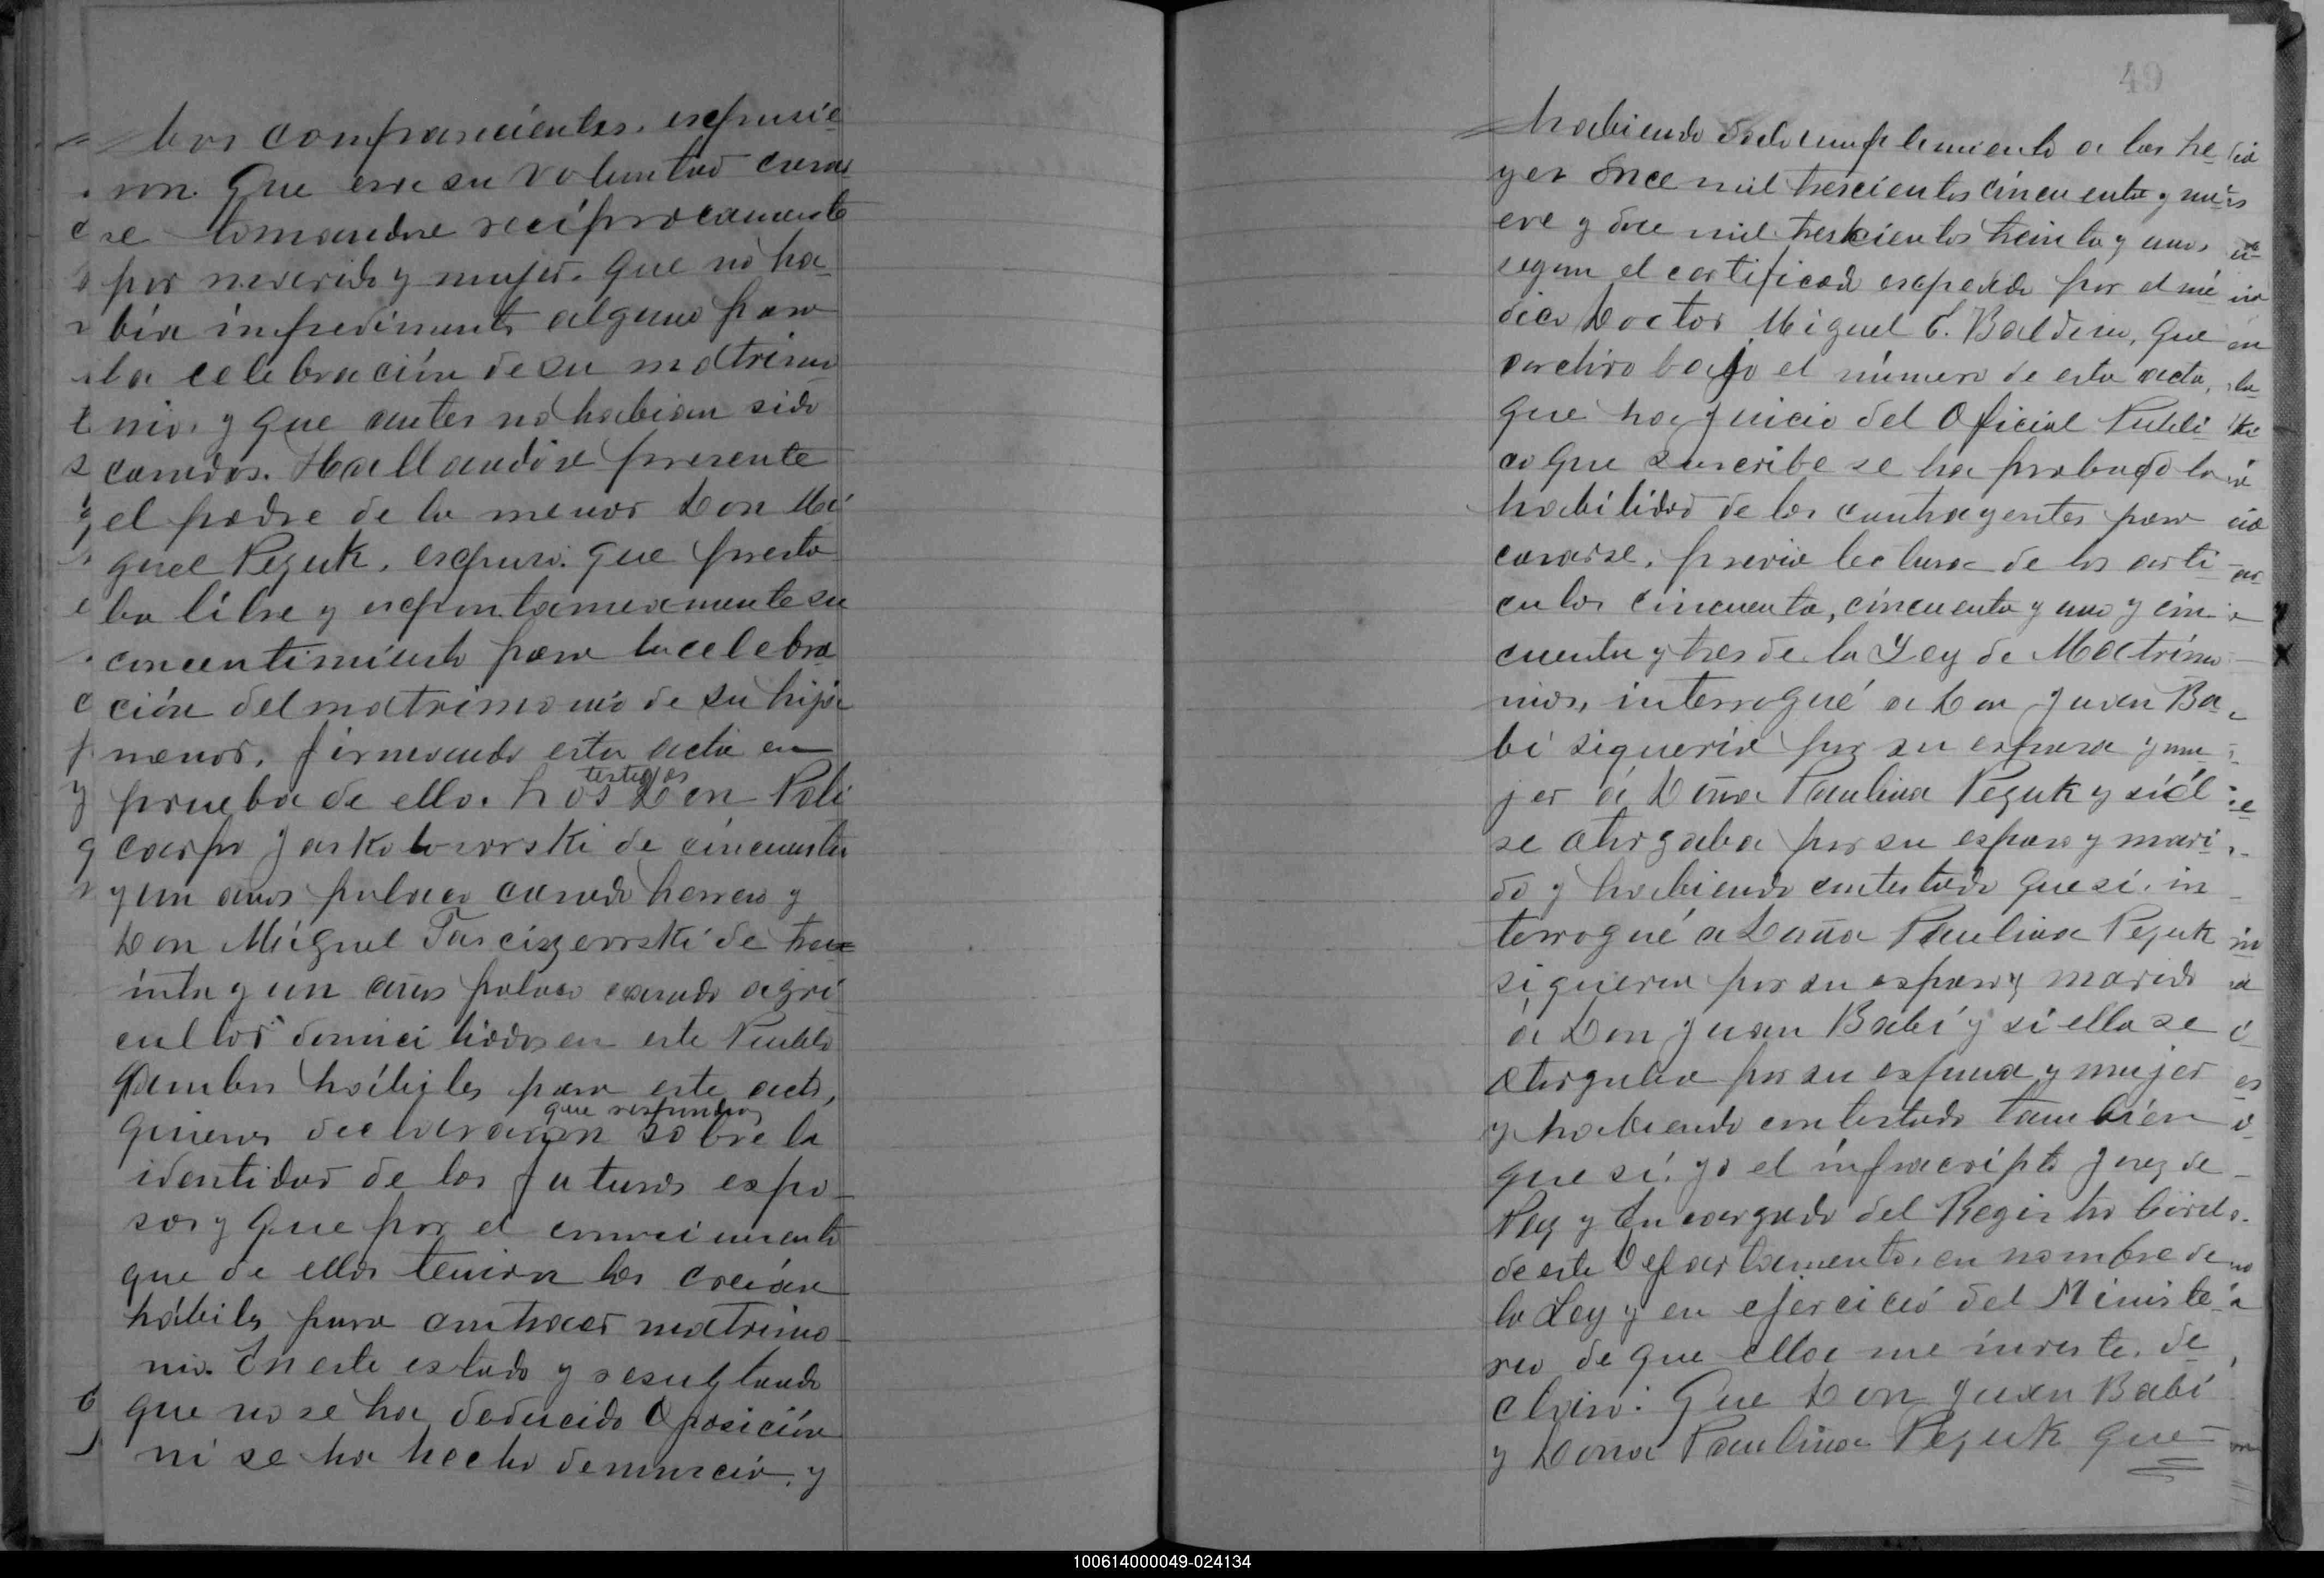 bos comparecientes. espusie
ron. Que era su voluntad casar
se tomandose reciprocamente
por marido y mujer. Que no ha-
bia impedimento alguno para
la celebración de su matrimo
nio. y que antes no habian sido
casados. Hallandose presente
el padre de la menor Don Mi
guel Pezuk. espuso. que presta
ba libre y espontaneamente su
concentimiento para la celebra
ción del matrimonio de su hija
menor. firmando esta acta en
prueba de ello. Los testigos Don Poli
carpo Jaskolowski de cincuenta
y un años polaco casado herrero y
Don Miguel Tarciszewski de tre
inta y un años polaco casado agri
cultor domiciliados en este Pueblo
y ambos hábiles para este acto,
quienes declararon que respondian sobre la
identidad de los futuros espo-
sos y que por el conocimiento
que de ellos tenian los creian
hábiles para contraer matrimo-
nio. En este estado y resultando
que no se ha deducido oposición
ni se ha hecho denuncia. y
49
habiendo dado cumplimiento a las le
yes once mil trescientos cincuenta y nu-
eve y doce mil trescientos treinta y uno
segun el certificado espedido por el mé
dico Doctor Miguel C. Baldino, que
archivo bajo el número de esta acta,
que ha juicio del Oficial Publi
co que suscribe se ha probado la
habilidad de los contrayentes para
casarse. previa lectura de los arti-
culos cincuenta, cincuenta y uno y cin
cuenta y tres de la Ley de Matrimo
nios, interrogué a Don Juan Ba
bi si queria por su esposa y mu
jer á Doña Paulina Pezuk y si él
se otorgaba por su esposo y mari
do y habiendo contestado que si. in
terrogué a Doña Paulina Pezuk
si queria por su esposo y marido
á Don Juan Babi y si ella se
otorgaba por su esposa y mujer
y habiendo contestado tambien
que si. yo el infrascripto Juez de
Paz y Encargado del Registro Civil
de este Departamento. en nombre de
la Ley y en ejercicio del Ministe
rio de que ella me inviste. de
claro: Que Don Juan Babi
y Doña Paulina Pezuk que
100614000049-024134